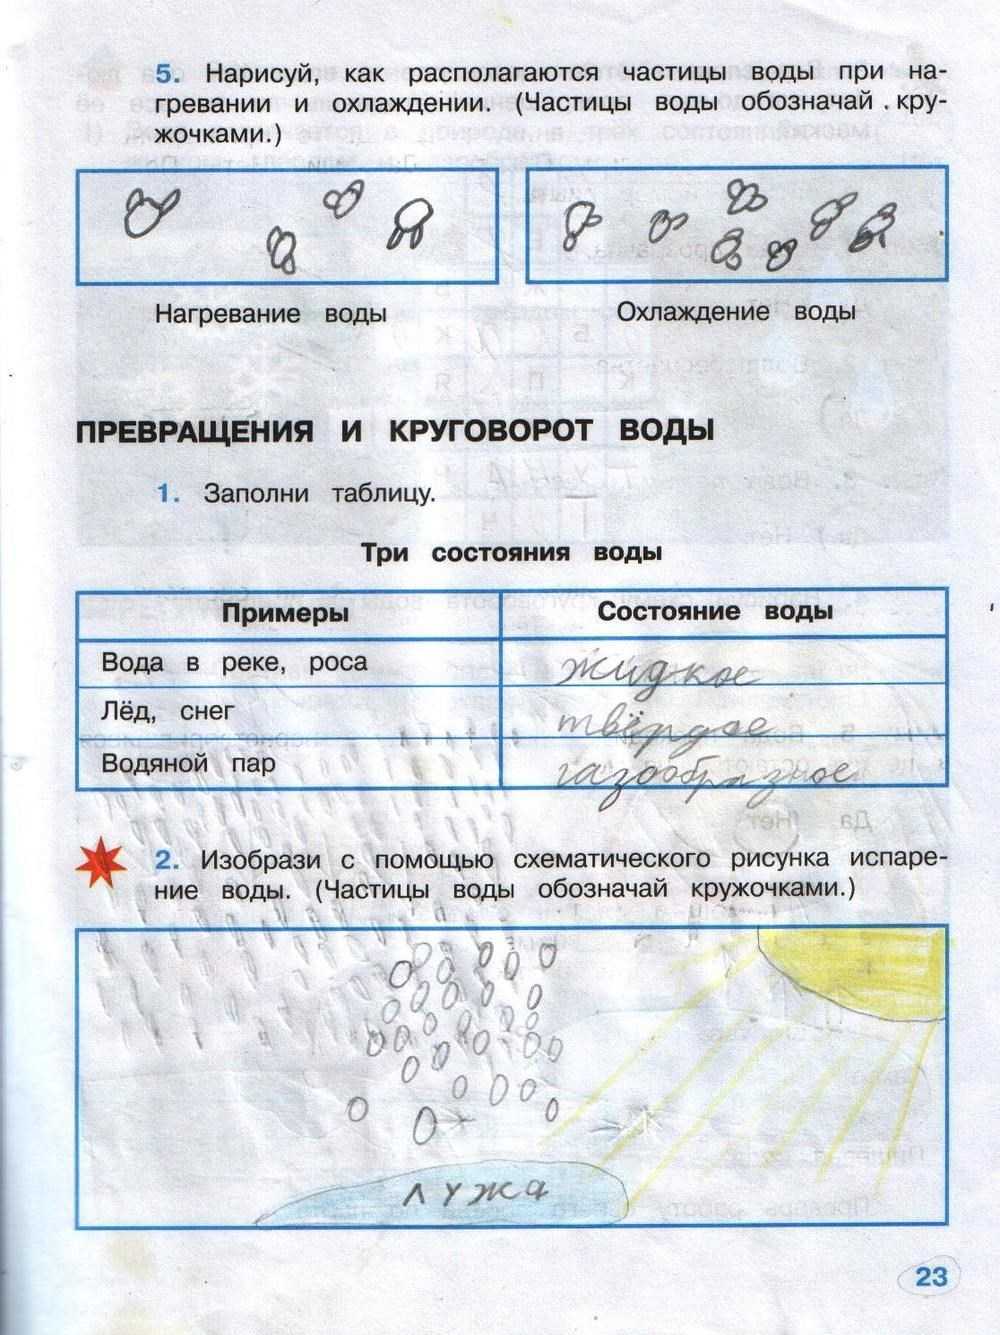 5. Нарисуй, как располагаются частицы воды при на-
гревании и охлаждении. (Частицы воды обозначай кру-
жочками.)
Нагревание воды
Охлаждение воды
ПРЕВРАЩЕНИЯ И КРУГОВОРОТ ВОДЫ
1. Заполни таблицу.
Три состояния воды
Примеры Состояние воды
Вода в реке, роса жидкое
Лёд, снег твёрдое
Водяной пар газообразное
2. Изобрази с помощью схематического рисунка испаре-
ние воды. (Частицы воды обозначай кружочками.)
лужа
23